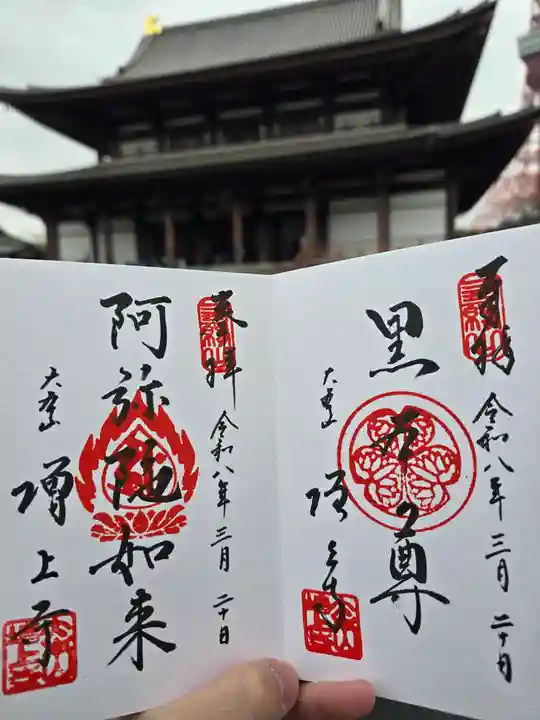 奉拝
令和八年三月二十日
黒本尊
大本山
増上寺
奉拝
令和八年三月二十日
阿弥陀如来
大本山
増上寺